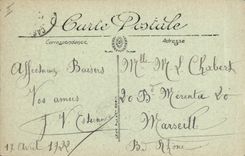 Carte Postale
Correspondance
Adresse
Affectueux Baisers
Vos amies
J V
17 Avril 1922
Mlle M L Chabert
20 Bd Merentie 20
Marseill
B. Rhône